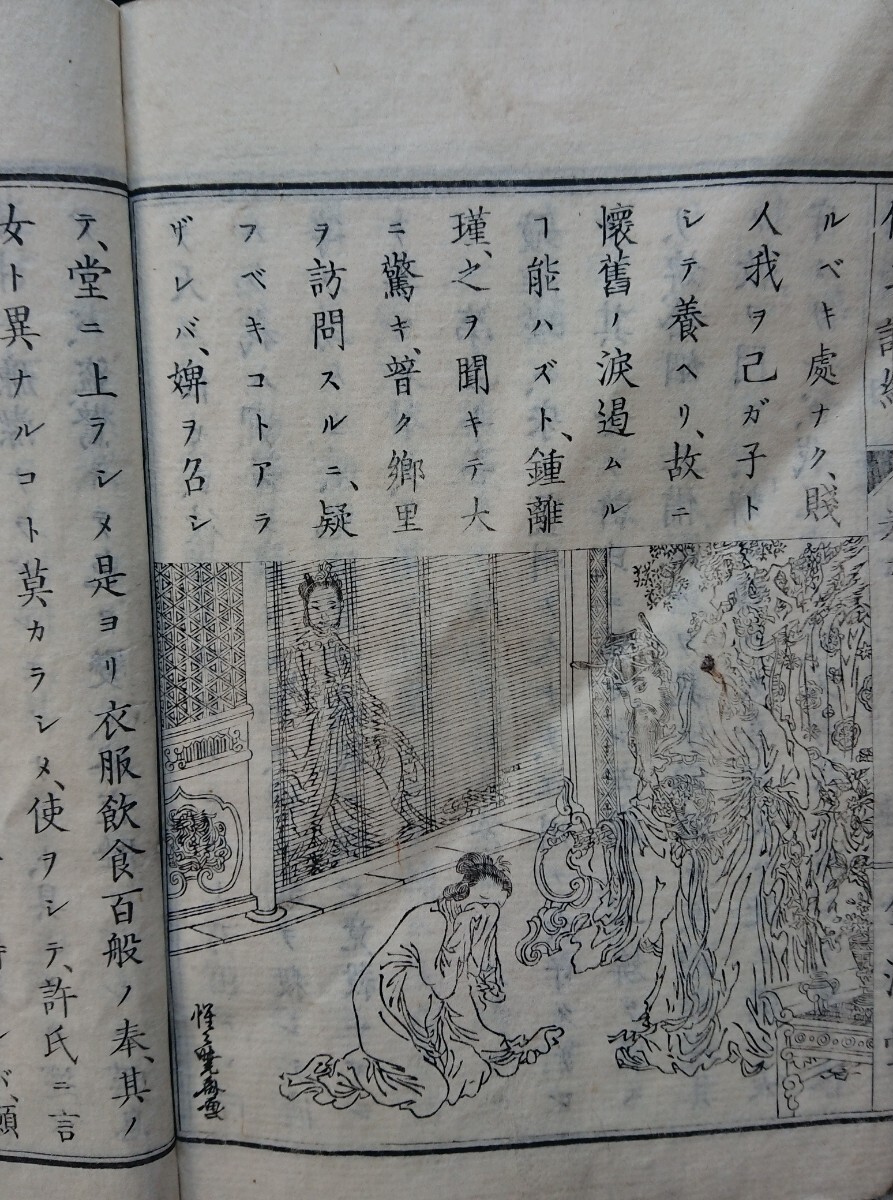 ルベキ處ナク、賤
人我ヲ己ガ子ト
シテ養ヘリ、故ニ
懷舊ノ淚遏ムル
ヿ能ハズト、鍾離
瑾、之ヲ聞キテ大
ニ驚キ、普ク鄉里
ヲ訪問スルニ、疑
フベキコトアラ
ザレバ、婢ヲ召シ
惺々暁斎画
テ、堂ニ上ラシメ是ヨリ衣服飲食百般ノ奉、其ノ
女ト異ナルコト莫カラシメ、使ヲシテ、許氏ニ言